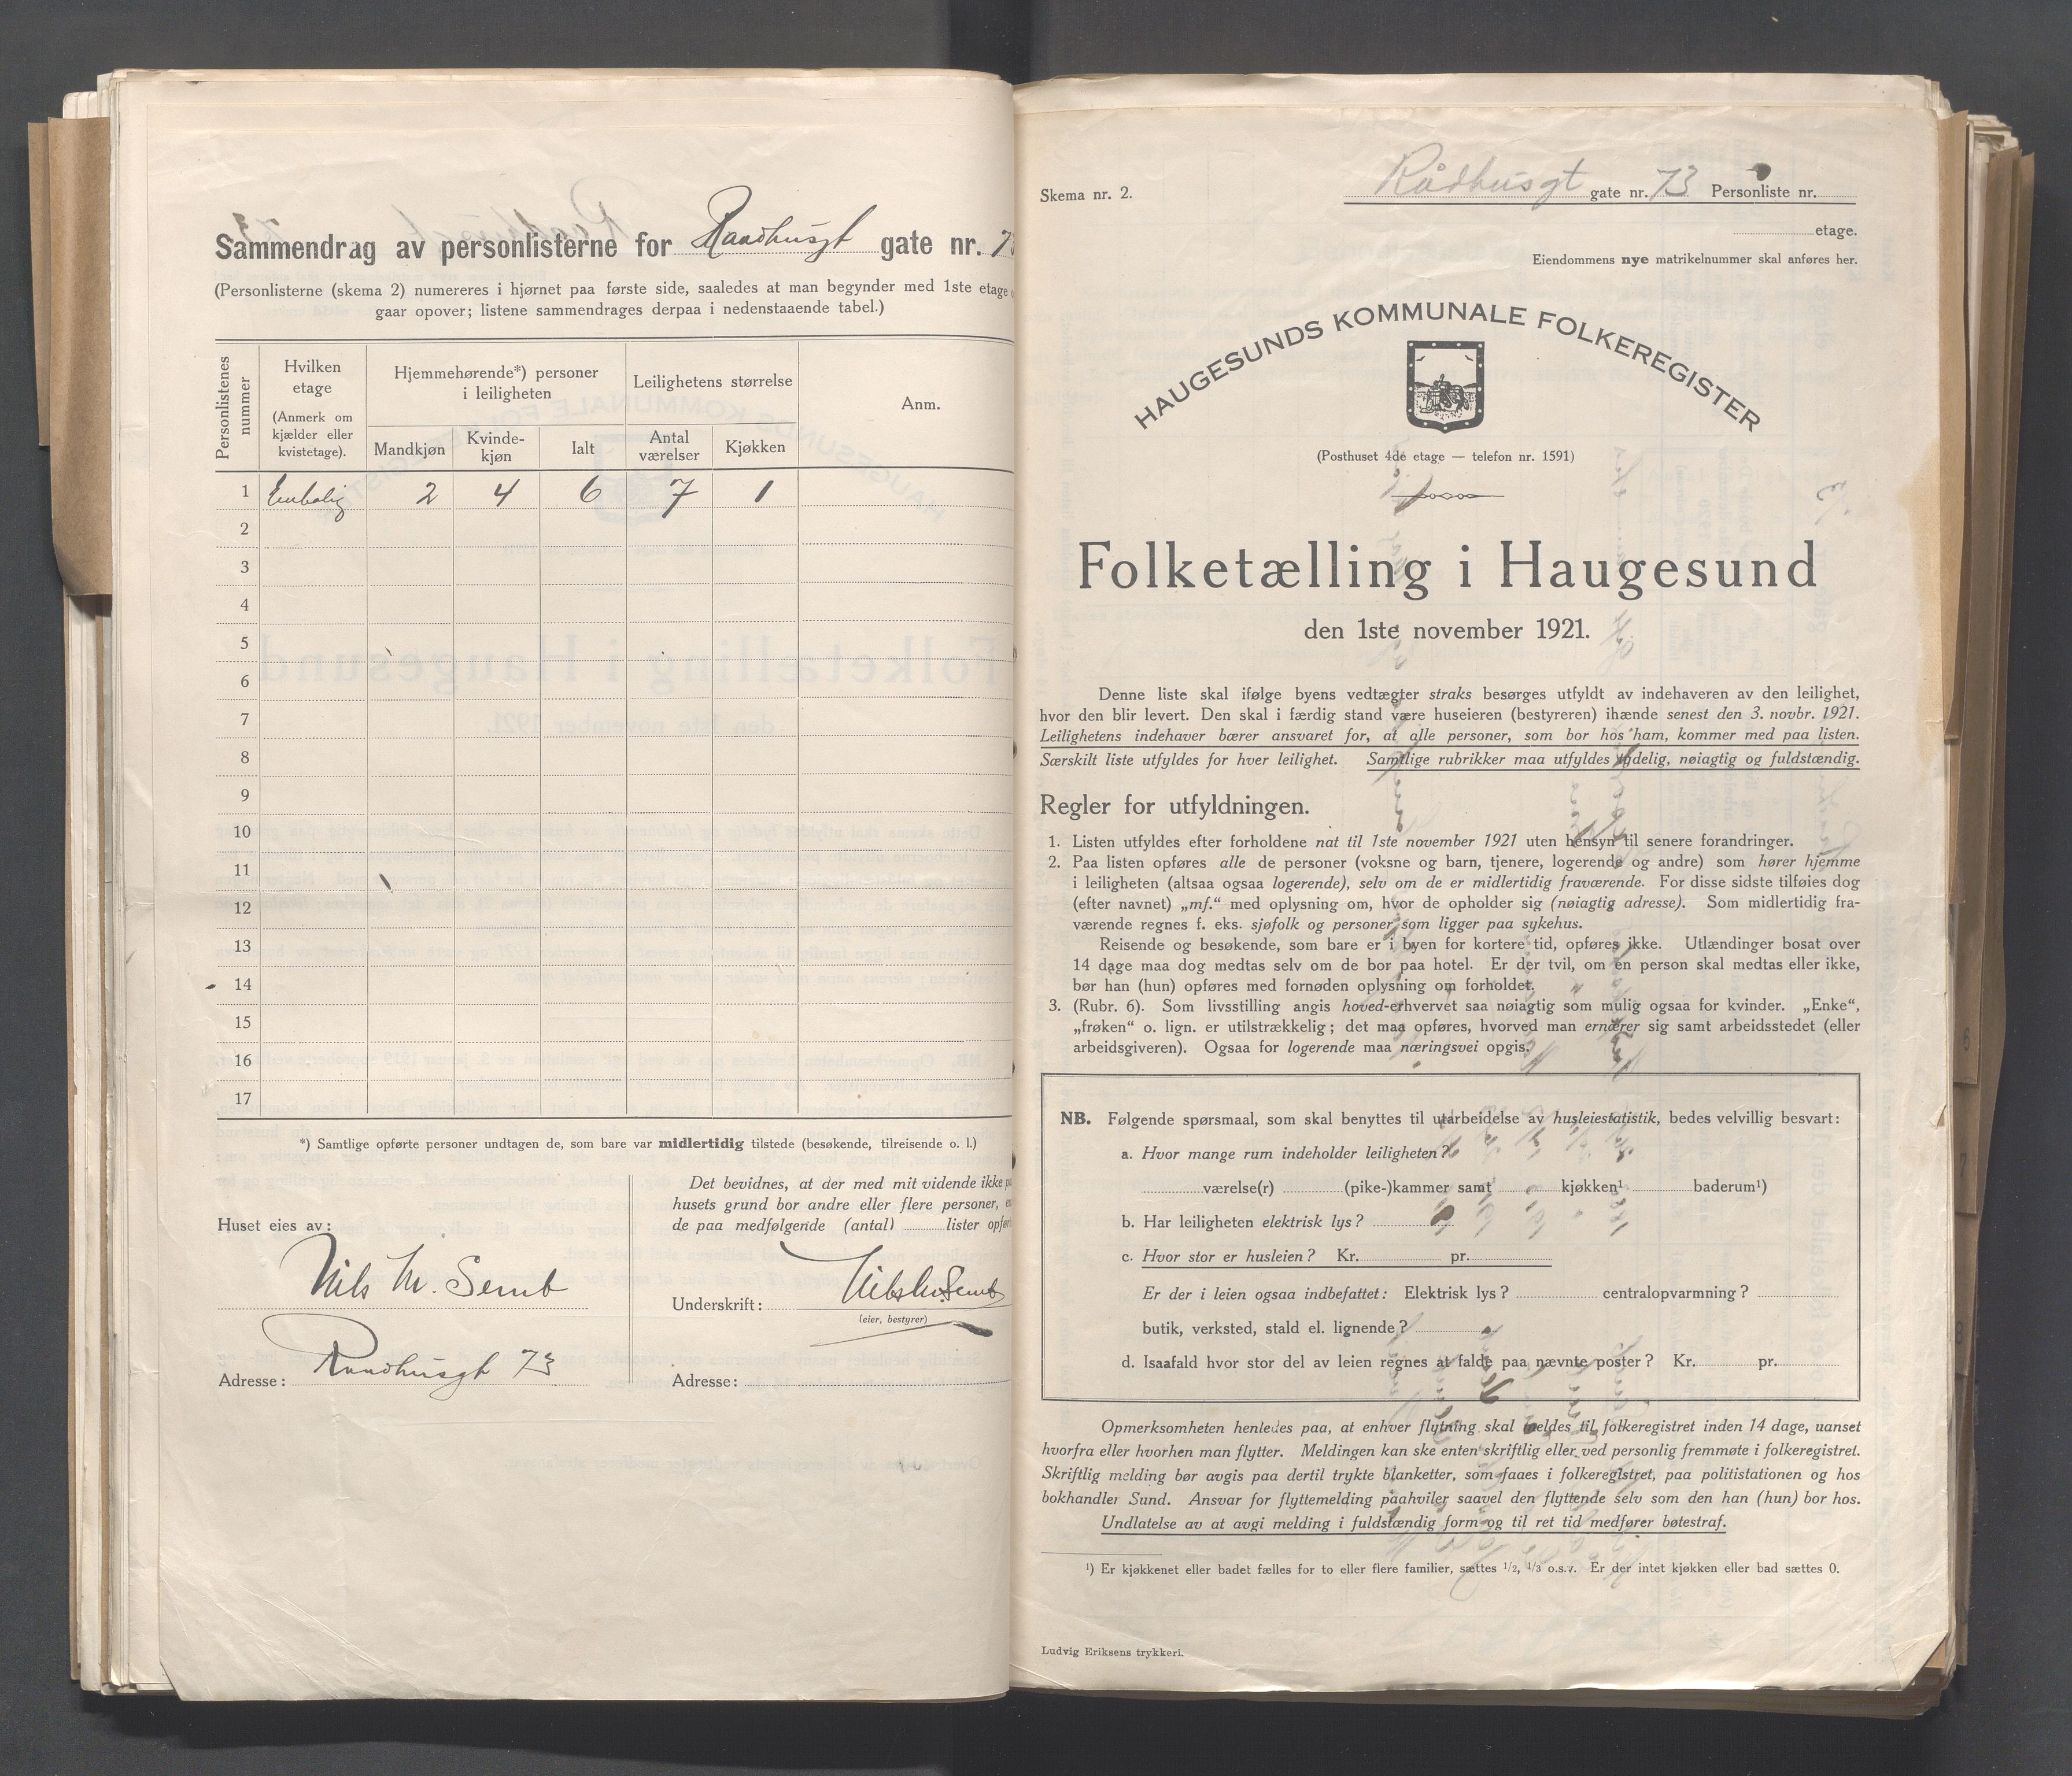 Sammendrag av personlisterne for Raadhusgt gate nr. 73
(Personlisterne (skema 2) numereres i hjørnet paa første side, saaledes at man begynder med 1ste etage
gaar opover; listene sammendrages derpaa i nedenstaaende tabel.)
Personlistenes nummer
Hvilken etage
(Anmerk om kjælder eller kvistetage).
Hjemmehørende*) personer i leiligheten
Mandkjøn
Kvinde-kjøn
Ialt
Leilighetens størrelse
Antal værelser
Kjøkken
Anm.
1 Enebolig 2 4 6 7 1
2
3
4
5
6
7
8
9
10
11
12
13
14
15
16
17
*) Samtlige opførte personer undtagen de, som bare var midlertidig tilstede (besøkende, tilreisende o. l.)
Huset eies av:
Nils M. Semb
Adresse: Raadhusgt 73
Det bevidnes, at der med mit vidende ikke
husets grund bor andre eller flere personer,
de paa medfølgende (antal) lister
Underskrift: Nils M. Semb
(eier, bestyrer)
Adresse:
Skema nr. 2.
Rådhusgt gate nr. 73 Personliste nr.
etage.
Eiendommens nye matrikelnummer skal anføres her.
HAUGESUNDS KOMMUNALE FOLKEREGISTER
(Posthuset 4de etage — telefon nr. 1591)
Folketælling i Haugesund
den 1ste november 1921.
Denne liste skal ifølge byens vedtægter straks besørges utfyldt av indehaveren av den leilighet,
hvor den blir levert. Den skal i færdig stand være huseieren (bestyreren) ihænde senest den 3. novbr. 1921.
Leilighetens indehaver bærer ansvaret for, at alle personer, som bor hos ham, kommer med paa listen.
Særskilt liste utfyldes for hver leilighet. Samtlige rubrikker maa utfyldes tydelig, nøiagtig og fuldstændig.
Regler for utfyldningen.
1. Listen utfyldes efter forholdene nat til 1ste november 1921 uten hensyn til senere forandringer.
2. Paa listen opføres alle de personer (voksne og barn, tjenere, logerende og andre) som hører hjemme
i leiligheten (altsaa ogsaa logerende), selv om de er midlertidig fraværende. For disse sidste tilføies dog
(efter navnet) „mf.“ med oplysning om, hvor de opholder sig (nøiagtig adresse). Som midlertidig fra-
værende regnes f. eks. sjøfolk og personer som ligger paa sykehus.
Reisende og besøkende, som bare er i byen for kortere tid, opføres ikke. Utlændinger bosat over
14 dage maa dog medtas selv om de bor paa hotel. Er der tvil, om en person skal medtas eller ikke,
bør han (hun) opføres med fornøden oplysning om forholdet.
3. (Rubr. 6). Som livsstilling angis hoved-erhvervet saa nøiagtig som mulig ogsaa for kvinder. „Enke“,
„frøken“ o. lign. er utilstrækkelig; det maa opføres, hvorved man ernærer sig samt arbeidsstedet (eller
arbeidsgiveren). Ogsaa for logerende maa næringsvei opgis.
NB. Følgende spørsmaal, som skal benyttes til utarbeidelse av husleiestatistik, bedes velvillig besvart:
a. Hvor mange rum indeholder leiligheten?
værelse(r) (pike-)kammer samt kjøkken¹ baderum¹)
b. Har leiligheten elektrisk lys?
c. Hvor stor er husleien? Kr. pr.
Er der i leien ogsaa indbefattet: Elektrisk lys? centralopvarmning?
butik, verksted, stald el. lignende?
d. Isaafald hvor stor del av leien regnes at falde paa nævnte poster? Kr. pr.
Opmerksomheten henledes paa, at enhver flytning skal meldes til folkeregistret inden 14 dage, uanset
hvorfra eller hvorhen man flytter. Meldingen kan ske enten skriftlig eller ved personlig fremmøte i folkeregistret.
Skriftlig melding bør avgis paa dertil trykte blanketter, som faaes i folkeregistret, paa politistationen og hos
bokhandler Sund. Ansvar for flyttemelding paahviler saavel den flyttende selv som den han (hun) bor hos.
Undlatelse av at avgi melding i fuldstændig form og til ret tid medfører bøtestraf.
¹) Er kjøkkenet eller badet fælles for to eller flere familier, sættes 1/2, 1/3 o.s.v. Er der intet kjøkken eller bad sættes 0.
Ludvig Eriksens trykkeri.